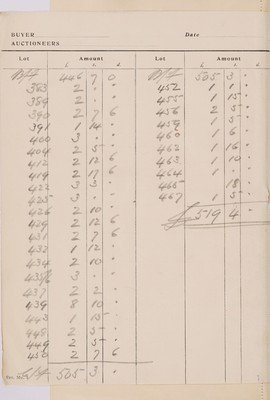 BUYER
Date
AUCTIONEERS
Lot Amount
£ s. d.
B/f 446 7 0
383 2 " "
389 2 " "
390 2 7 6
398 1 14 "
400 3 " "
404 2 5 "
412 2 12 6
419 2 17 6
422 3 3 "
425 3 " "
426 2 10 "
429 2 12 6
431 2 7 6
432 1 12 "
434 2 10 "
435/6 3 " "
437 2 2 "
439 8 10 "
443 1 15 "
448 2 5 "
449 2 5 "
450 2 7 6
C/f 505 3 "
Lot Amount
£ s. d.
B/f 505 3 "
452 1 1 "
455 1 15 "
456 2 5 "
459 1 5 "
460 1 6 "
462 1 16 "
463 1 10 "
464 1 " "
465 18 "
467 1 5 "
£519 4 "